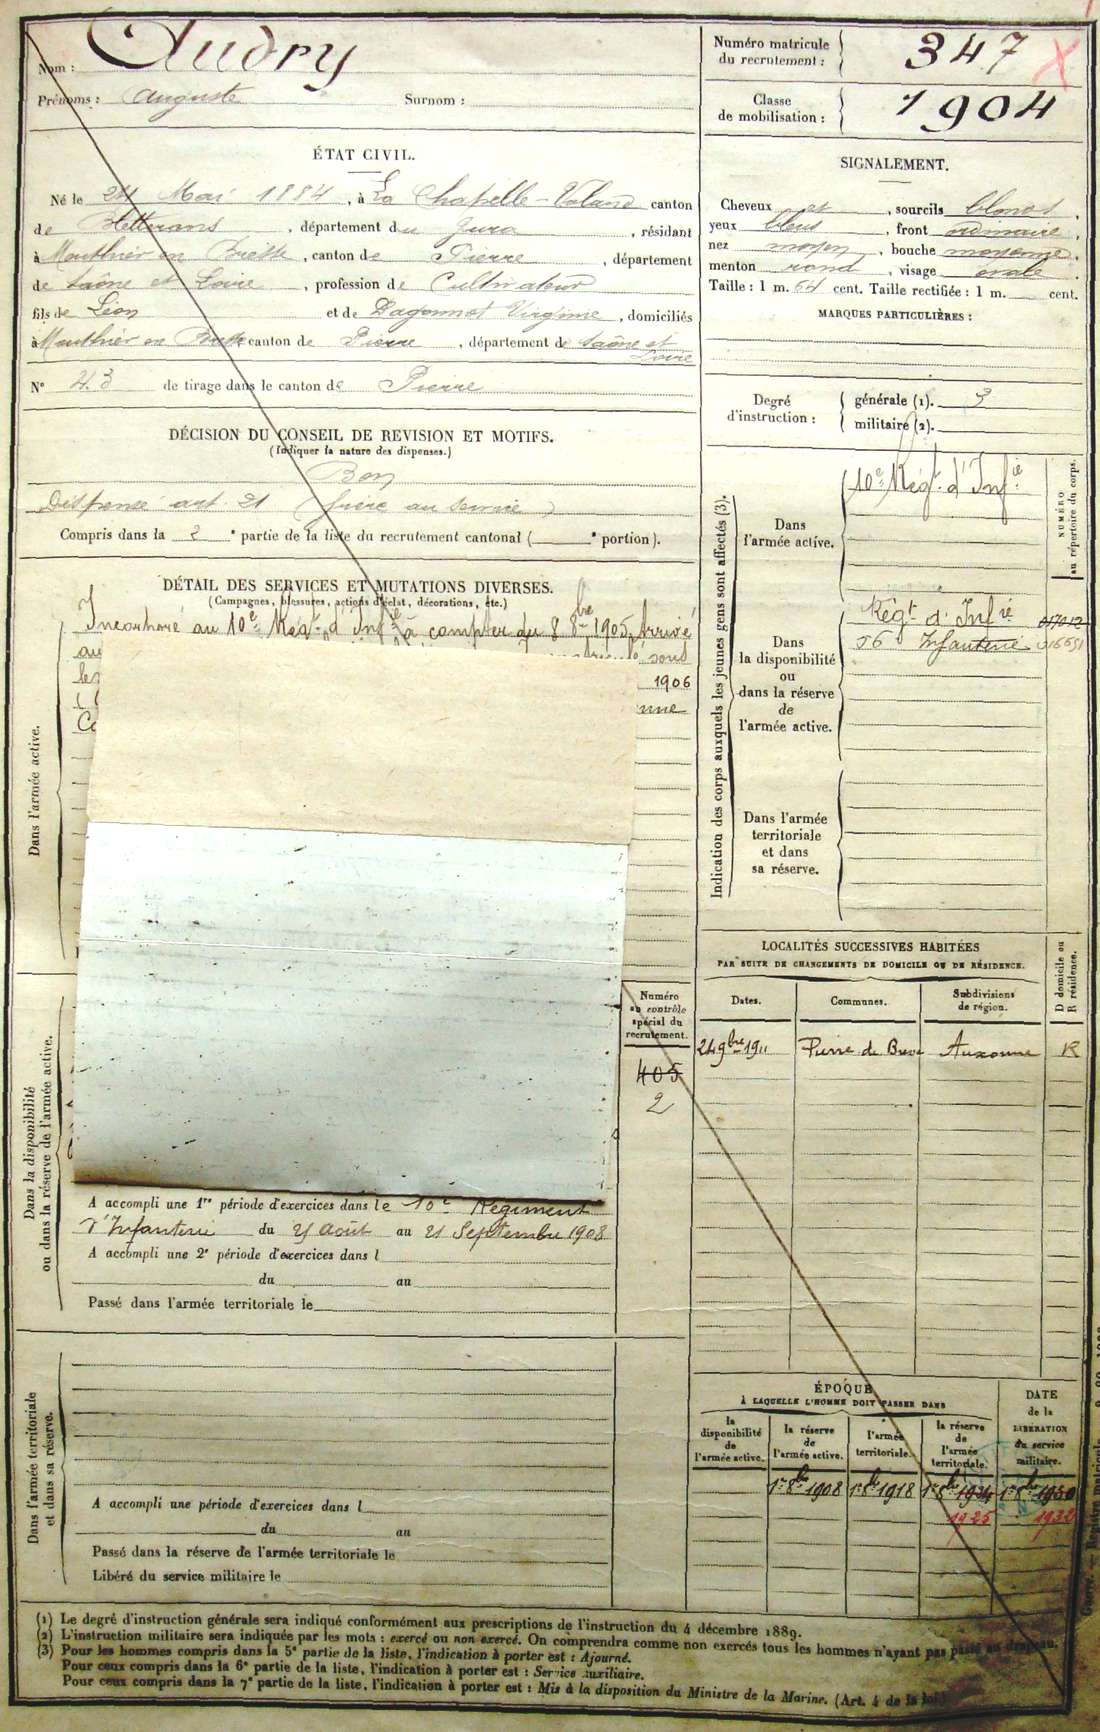 Nom : Audry
Prénoms : Auguste Surnom :
Numéro matricule du recrutement : 347
Classe de mobilisation : 1904
ÉTAT CIVIL.
Né le 24 Mai 1884, à La Chapelle-Voland canton
de Bletterans, département du Jura, résidant
à Mouthier en Bresse, canton de Pierre, département
de Saône et Loire, profession de Cultivateur
fils de Léon et de Dagonnot Virginie, domiciliés
à Mouthier en Bresse canton de Pierre, département de Saône et Loire
N° 43 de tirage dans le canton de Pierre
SIGNALEMENT.
Cheveux et, sourcils blonds,
yeux bleus, front ordinaire,
nez moyen, bouche moyenne,
menton rond, visage ovale.
Taille : 1 m. 64 cent. Taille rectifiée : 1 m. cent.
MARQUES PARTICULIÈRES :
Degré d'instruction : générale (1). 3
militaire (2).
DÉCISION DU CONSEIL DE REVISION ET MOTIFS.
(Indiquer la nature des dispenses.)
Bon
Dispensé art. 21 (frère au service)
Compris dans la 2e partie de la liste du recrutement cantonal ( e portion).
DÉTAIL DES SERVICES ET MUTATIONS DIVERSES.
(Campagnes, blessures, actions d'éclat, décorations, etc.)
Dans l'armée active.
Incorporé au 10e Régt d'Infie à compter du 8 8bre 1905, Arrivé
au sous
1906
Indication des corps auxquels les jeunes gens sont affectés (3).
NUMÉRO au répertoire du corps.
Dans l'armée active.
10e Régt d'Infie
Dans la disponibilité ou dans la réserve de l'armée active.
Régt d'Infie
56 Infanterie
Dans l'armée territoriale et dans sa réserve.
LOCALITÉS SUCCESSIVES HABITÉES
PAR SUITE DE CHANGEMENTS DE DOMICILE OU DE RÉSIDENCE.
D domicile ou R résidence.
Dates. Communes. Subdivisions de région.
24 9bre 1911 Pierre de Bresse Auxonne R
Dans la disponibilité ou dans la réserve de l'armée active.
Numéro au contrôle spécial du recrutement.
405
2
A accompli une 1re période d'exercices dans le 10e Régiment
d'Infanterie du 25 Août au 21 Septembre 1908
A accompli une 2e période d'exercices dans l
du au
Passé dans l'armée territoriale le
ÉPOQUE
À LAQUELLE L'HOMME DOIT PASSER DANS
DATE de la LIBÉRATION du service militaire.
la disponibilité de l'armée active.
la réserve de l'armée active.
l'armée territoriale.
la réserve de l'armée territoriale.
1er 8bre 1908 1er 8bre 1918 1er 8bre 1924 1er 8bre 1930
1925 1932
Dans l'armée territoriale et dans sa réserve.
A accompli une période d'exercices dans l
du au
Passé dans la réserve de l'armée territoriale le
Libéré du service militaire le
(1) Le degré d'instruction générale sera indiqué conformément aux prescriptions de l'instruction du 4 décembre 1889.
(2) L'instruction militaire sera indiquée par les mots : exercé ou non exercé. On comprendra comme non exercés tous les hommes n'ayant pas passé au drapeau.
(3) Pour les hommes compris dans la 5e partie de la liste, l'indication à porter est : Ajourné.
Pour ceux compris dans la 6e partie de la liste, l'indication à porter est : Service auxiliaire.
Pour ceux compris dans la 7e partie de la liste, l'indication à porter est : Mis à la disposition du Ministre de la Marine. (Art. 4 de la loi.)